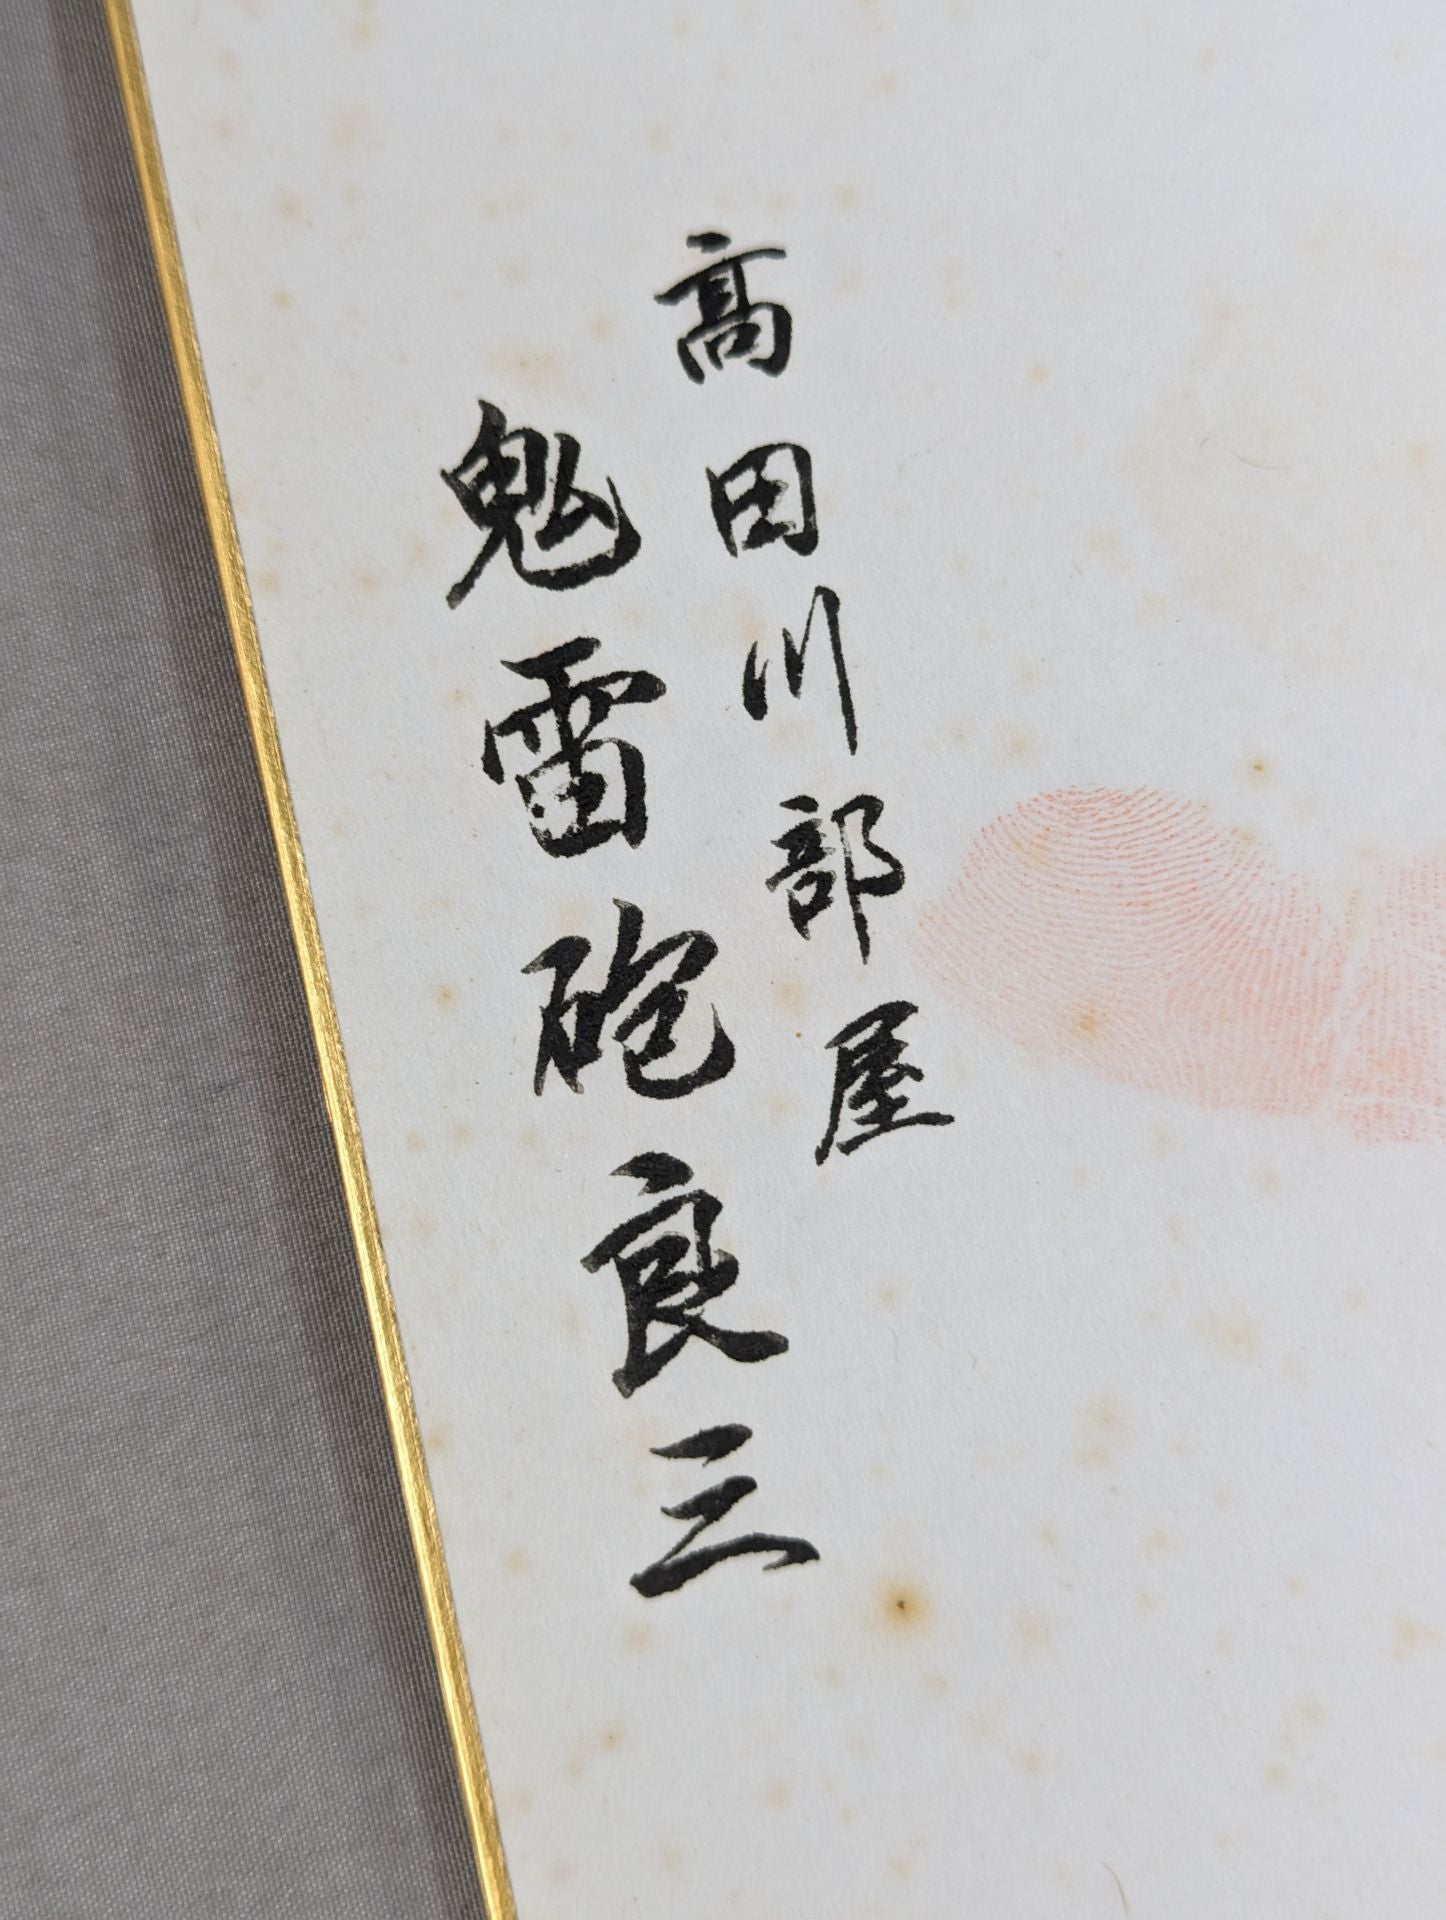 高田川部屋
鬼雷砲良三